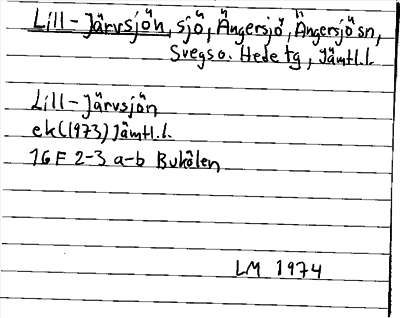 Lill-Järvsjön, sjö, Ängersjö, Ängersjö sn,
Svegs o. Hede tg, Jämtl.l.
Lill-Järvsjön
ek(1973) Jämtl.l.
16F 2-3 a-b Buhölen
LM 1974